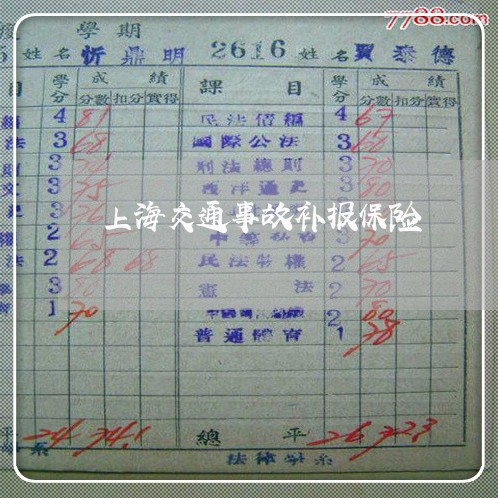 7788.com
學期
5 姓名 忻鼎明 2616 姓名 賈泰德
目 學分 成績 課目 學分 成績
分數 扣分 實得 分數 扣分 實得
4 81 民法債編 4 67
法 3 68 國際公法 3 60
則 3 刑法總則 3 70
文 3 75 西洋通史 3 80
史 3 76 3
上海交通事故补报保险
權 2 65 3 70
法 2 68 68 民法物權 2 65
3 80 憲法 2 70
育 1 70 2 80
普通體育 1 78
平 24 74.1 總平 26 72.3
系 法律學系